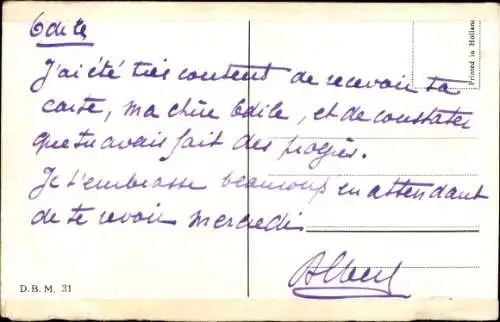 J'ai été très content de recevoir ta
carte, ma chère Odile, et de constater
que tu avais fait des progrès.
Je t'embrasse beaucoup en attendant
de te revoir mercredi
Albert
D.B.M. 31
Printed in Holland